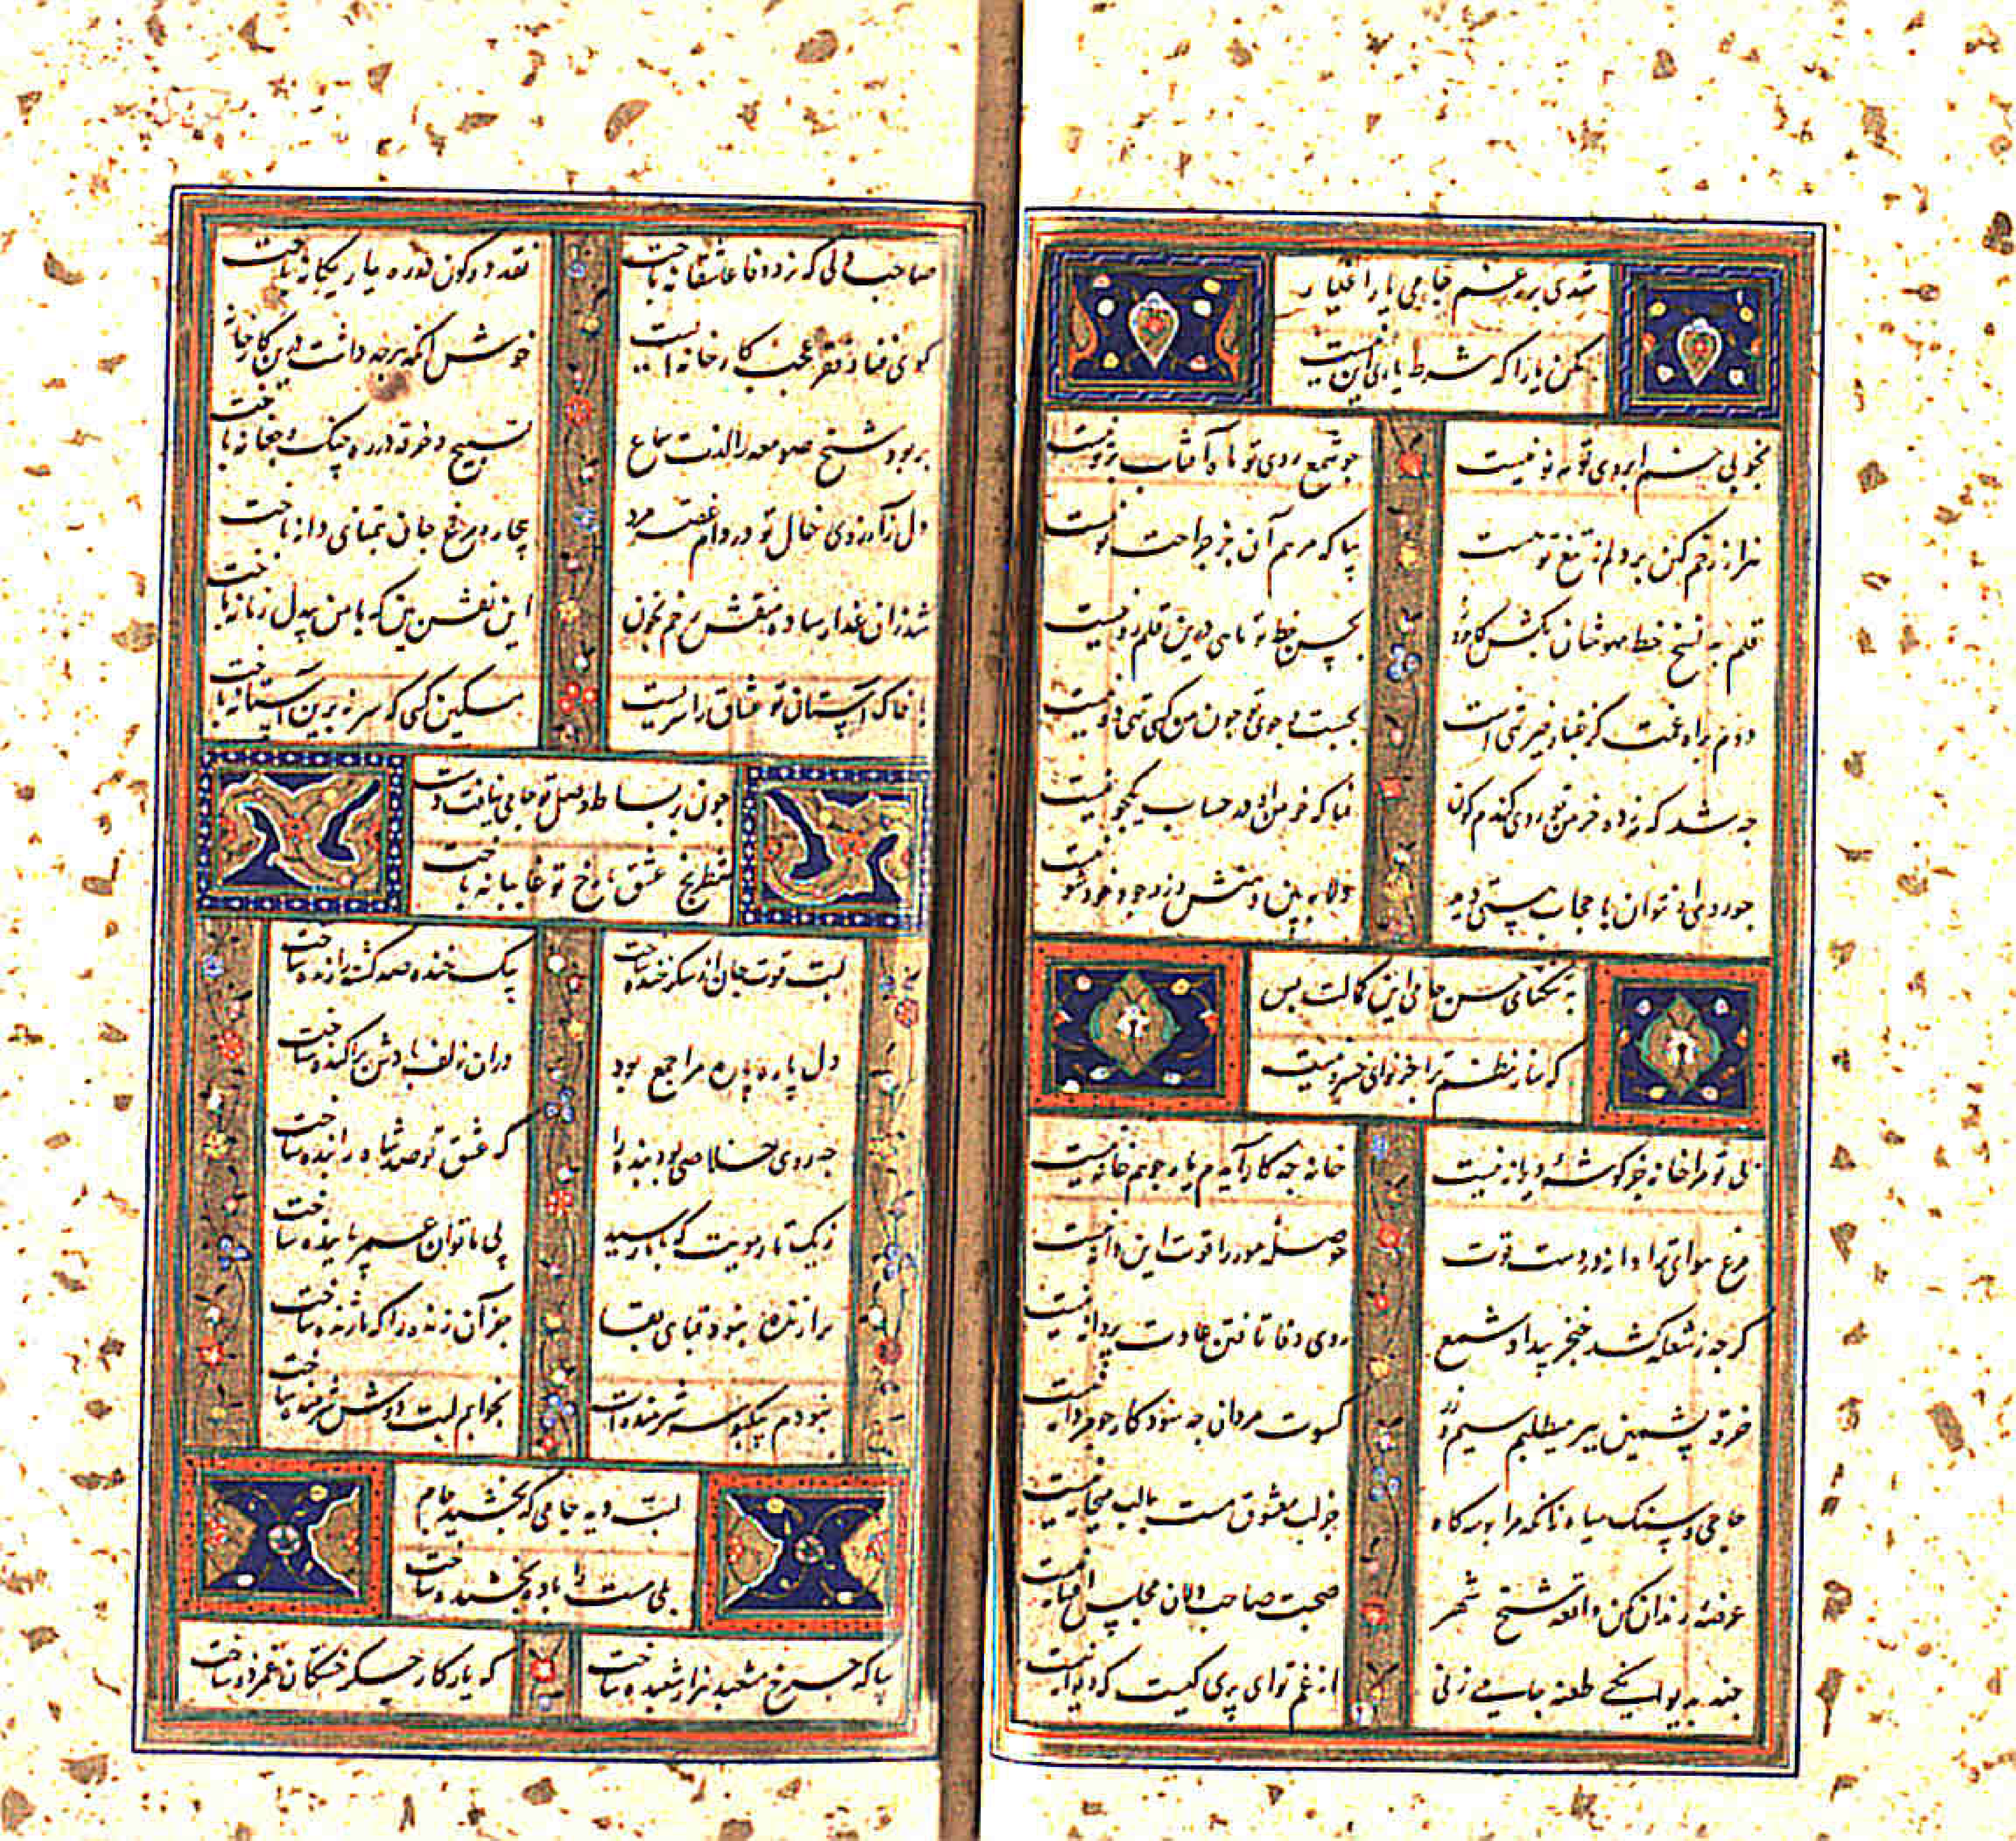 شدی برغم جامی یار اغیار
مکن یارا که شرط یاری این نیست
بخوبی خم ابروی تو مه نو نیست جو شمع روی تو ماه آفتاب پرتو نیست
هزار زخم کهن بر دلم ز تیغ تو هست بیا که مرهم آن جز جراحت نو نیست
قلم به نسخ خط مهوشان بکش که بحسن خط تو ماهی درین قلم رو نیست
دوم براه غمت کر غبار خیزی هست بجست و جوی تو جون من کسی تک و دو نیست
جه شد که زد ره خرمن تو روی کندم کون نما که خرمن مه در حساب یکجو نیست
به نکتهای حسن جامی این کمالت بس
که ساز نظم ترا جز نوای خسرو نیست
بی تو مرا خانه جز کوشهٔ ویرانه نیست خانه جه کار آیدم یار جو همخانه نیست
مرغ هوای ترا دانه در دست قوت حوصلهٔ مور را قوت این دانه نیست
کر جه ز شعله کشد خنجر بیداد شمع روی وفا تافتن عادت پروانه نیست
خرقهٔ پشمین ببر میطلبم سیم و زر کسوت مردان جه سود کار جو مردانه نیست
حاجی و سنک سیاه زانکه مرا بوسه کاه جز لب معشوق مست یا لب پیمانه نیست
عرضهٔ رندان مکن واقعه شیخ شهر صحبت صاحب دلان مجلس افسانه نیست
جند به دیوانکی طعنه جامی زنی از غم تو ای پری کیست که دیوانه نیست
صاحب دلی که نرد وفا عاشقانه باخت نقد دو کون در ره یار یکانه باخت
کوی فنا و فقر عجب کارخانه ایست خوش آنکه هرجه داشت درین کارخانه باخت
بربود شیخ صومعه را لذت سماع تسبیح و خرقه در ره جنک و جغانه باخت
دل ز آرزوی خال تو در دام غصه مرد بیچاره مرغ جان بتمنای دانه باخت
شد زان عذار ساده منقش رخم بخون این نقش بین که با من بیدل زمانه باخت
با خاک آستان تو عشاق را سریست مسکین کسی که سر نه برین آستانه باخت
جون بر بساط وصل تو جامی نیافت دست
شطرنج عشق با رخ تو غایبانه باخت
لبت قوت جان از شکر خنده ساخت بیک خنده صد کشته را زنده ساخت
دل پاره پاره مرا جمع بود دران زلف بادش پراکنده ساخت
جه روی خلاصی بود بنده را که عشق تو صد شاه را بنده ساخت
ز یک تار مویت که بکار رسید پی ناتوان عمر پاینده ساخت
برازنده نبود قبای بقا جز آن زنده را که با ژنده ساخت
نبودم بیکبوسه شرمنده ات بخوابم لبت دوش شرمنده ساخت
لبت دید جامی که بخشید جام
بلی مست را باده بخشنده ساخت
بیا که جرخ مشعبد هزار شعبده ساخت که یار کار جکر خستکان غمزده ساخت